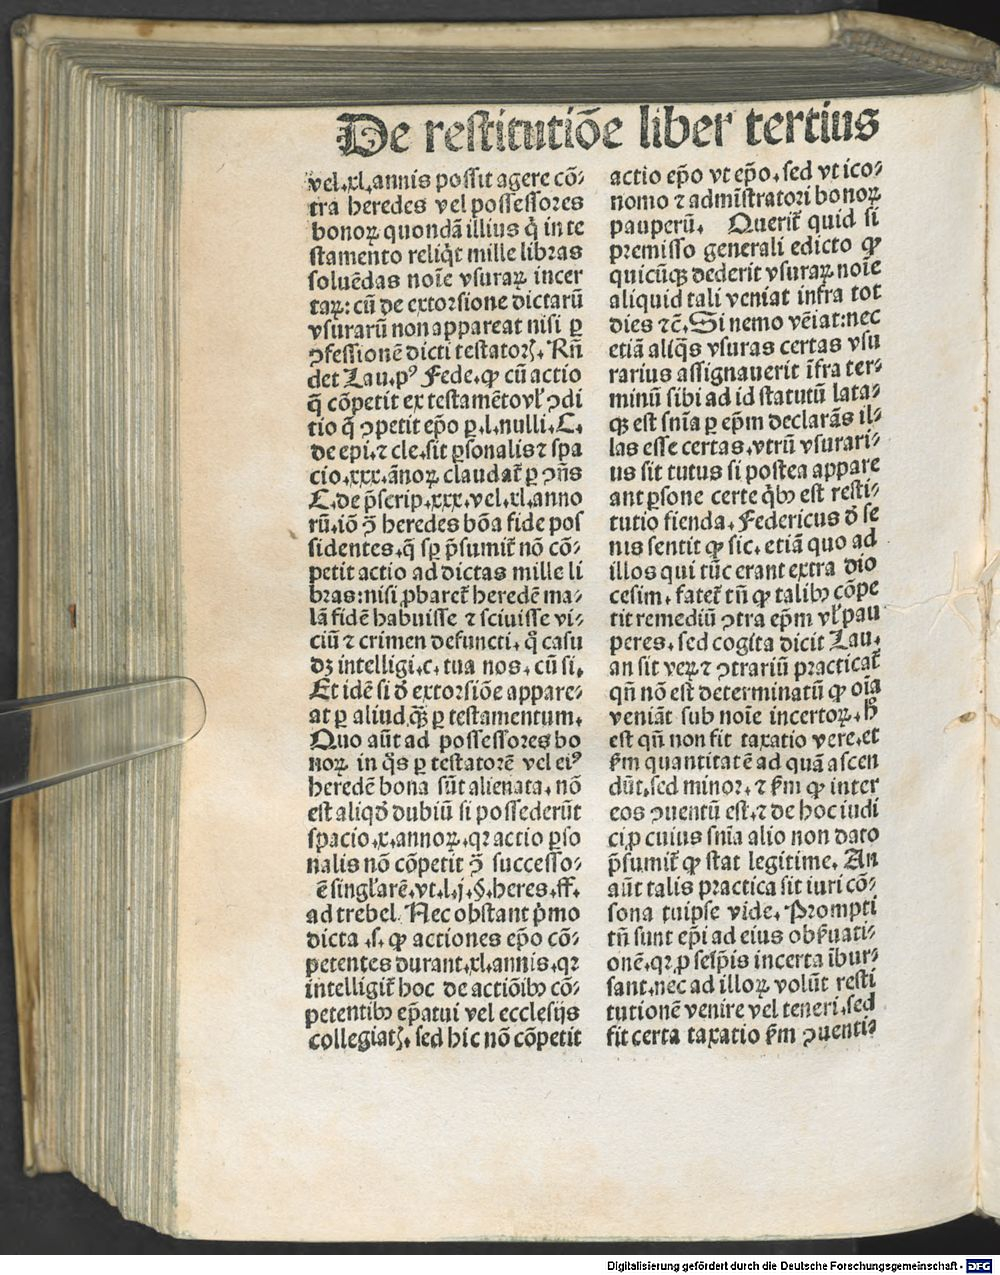 De restitutiõe liber tertius
vel.xl.annis possit agere cõ⸗
tra heredes vel possessores
bonoꝝ quondã illius q̃ in te
stamento reliq̃t mille libras
soluẽdas noĩe vsuraꝝ incer
taꝝ: cũ de extorsione dictarũ
vsurarũ non appareat nisi ꝑ
ꝯfessionẽ dicti testatoꝝ. Rñ
det Lau.pꝰ Fede.ꝙ cũ actio
q̃ cõpetit ex testamẽto vł ꝯdi
tio q̃ ꝯpetit ep̃o ꝑ.l.nulli.C.
de epi.⁊ cle.sit ꝑsonalis ⁊ spa
cio.xxx.ãnoꝝ claudat̃ ꝑ ꝯñs
C.de p̃scrip.xxx.vel.xl.anno
rũ.iõ ꝯ̃ heredes bõa fide pos
sidentes.q̃ sp̱ p̃sumit̃ nõ cõ⸗
petit actio ad dictas mille li
bras:nisi ꝓbaret̃ heredẽ ma⸗
lã fidẽ habuisse ⁊ sciuisse vi⸗
ciũ ⁊ crimen defuncti. q̃ casu
dꝫ intelligi.c.tua nos.cũ si.
Et idẽ si ð extorsiõe appare⸗
at ꝑ aliud q̃ꝫ ꝑ testamentum.
Quo aũt ad possessores bo
noꝝ in q̃s ꝑ testatorẽ vel eiꝰ
heredẽ bona sũt alienata.nõ
est aliqð dubiũ si possederũt
spacio.x.annoꝝ.qꝛ actio ꝑso
nalis nõ cõpetit ꝯ̃ successo⸗
ẽ singłarẽ.vt.l.j.§.heres.ff.
ad trebel. Nec obstant p̃mo
dicta .s. ꝙ actiones ep̃o cõ⸗
petentes durant.xl.annis.qꝛ
intelligit̃ hoc de actiõibꝫ cõ⸗
petentibꝫ ep̃atui vel ecclesijs
collegiatꝭ. sed hic nõ cõpetit
actio ep̃o vt ep̃o.sed vt ico⸗
nomo ⁊ admĩstratori bonoꝝ
pauperũ. Querit̃ quid si
premisso generali edicto ꝙ
quicũqꝫ dederit vsuraꝝ noĩe
aliquid tali veniat infra tot
dies ⁊c̃. Si nemo vẽiat:nec
etiã aliq̃s vsuras certas vsu
rarius assignauerit ĩfra ter⸗
minũ sibi ad id statutũ lata⸗
qꝫ est sñia ꝑ ep̃m declarãs il⸗
las esse certas.vtrũ vsurari⸗
us sit tutus si postea appare
ant ꝑsone certe q̃bꝫ est resti⸗
tutio fienda. Federicus ð se
nis sentit ꝙ sic. etiã quo ad
illos qui tũc erant extra dio
cesim. fatet̃ tñ ꝙ talibꝫ cõpe
tit remediũ ꝯtra ep̃m vł pau
peres. sed cogita dicit Lau.
an sit veꝝ ⁊ ꝯtrariũ practicat̃
qñ nõ est determinatũ ꝙ oĩa
veniãt sub noĩe incertoꝝ. h̃
est qñ non fit taxatio vere.et
ẜm quantitatẽ ad quã ascen
dũt.sed minor. ⁊ ẜm ꝙ inter
eos ꝯuentũ est.⁊ de hoc iudi
ci ꝓ cuius sñia alio non dato
p̃sumit̃ ꝙ stat legitime. An
aũt talis practica sit iuri cõ⸗
sona tuipse vide. Prompti
tñ sunt ep̃i ad eius obẜuati⸗
onẽ.qꝛ ꝓ seip̃is incerta ĩbur⸗
sant.nec ad illoꝝ volũt resti
tutionẽ venire vel teneri.sed
fit certa taxatio ẜm ꝯuenti⸗
Digitalisierung gefördert durch die Deutsche Forschungsgemeinschaft - DFG